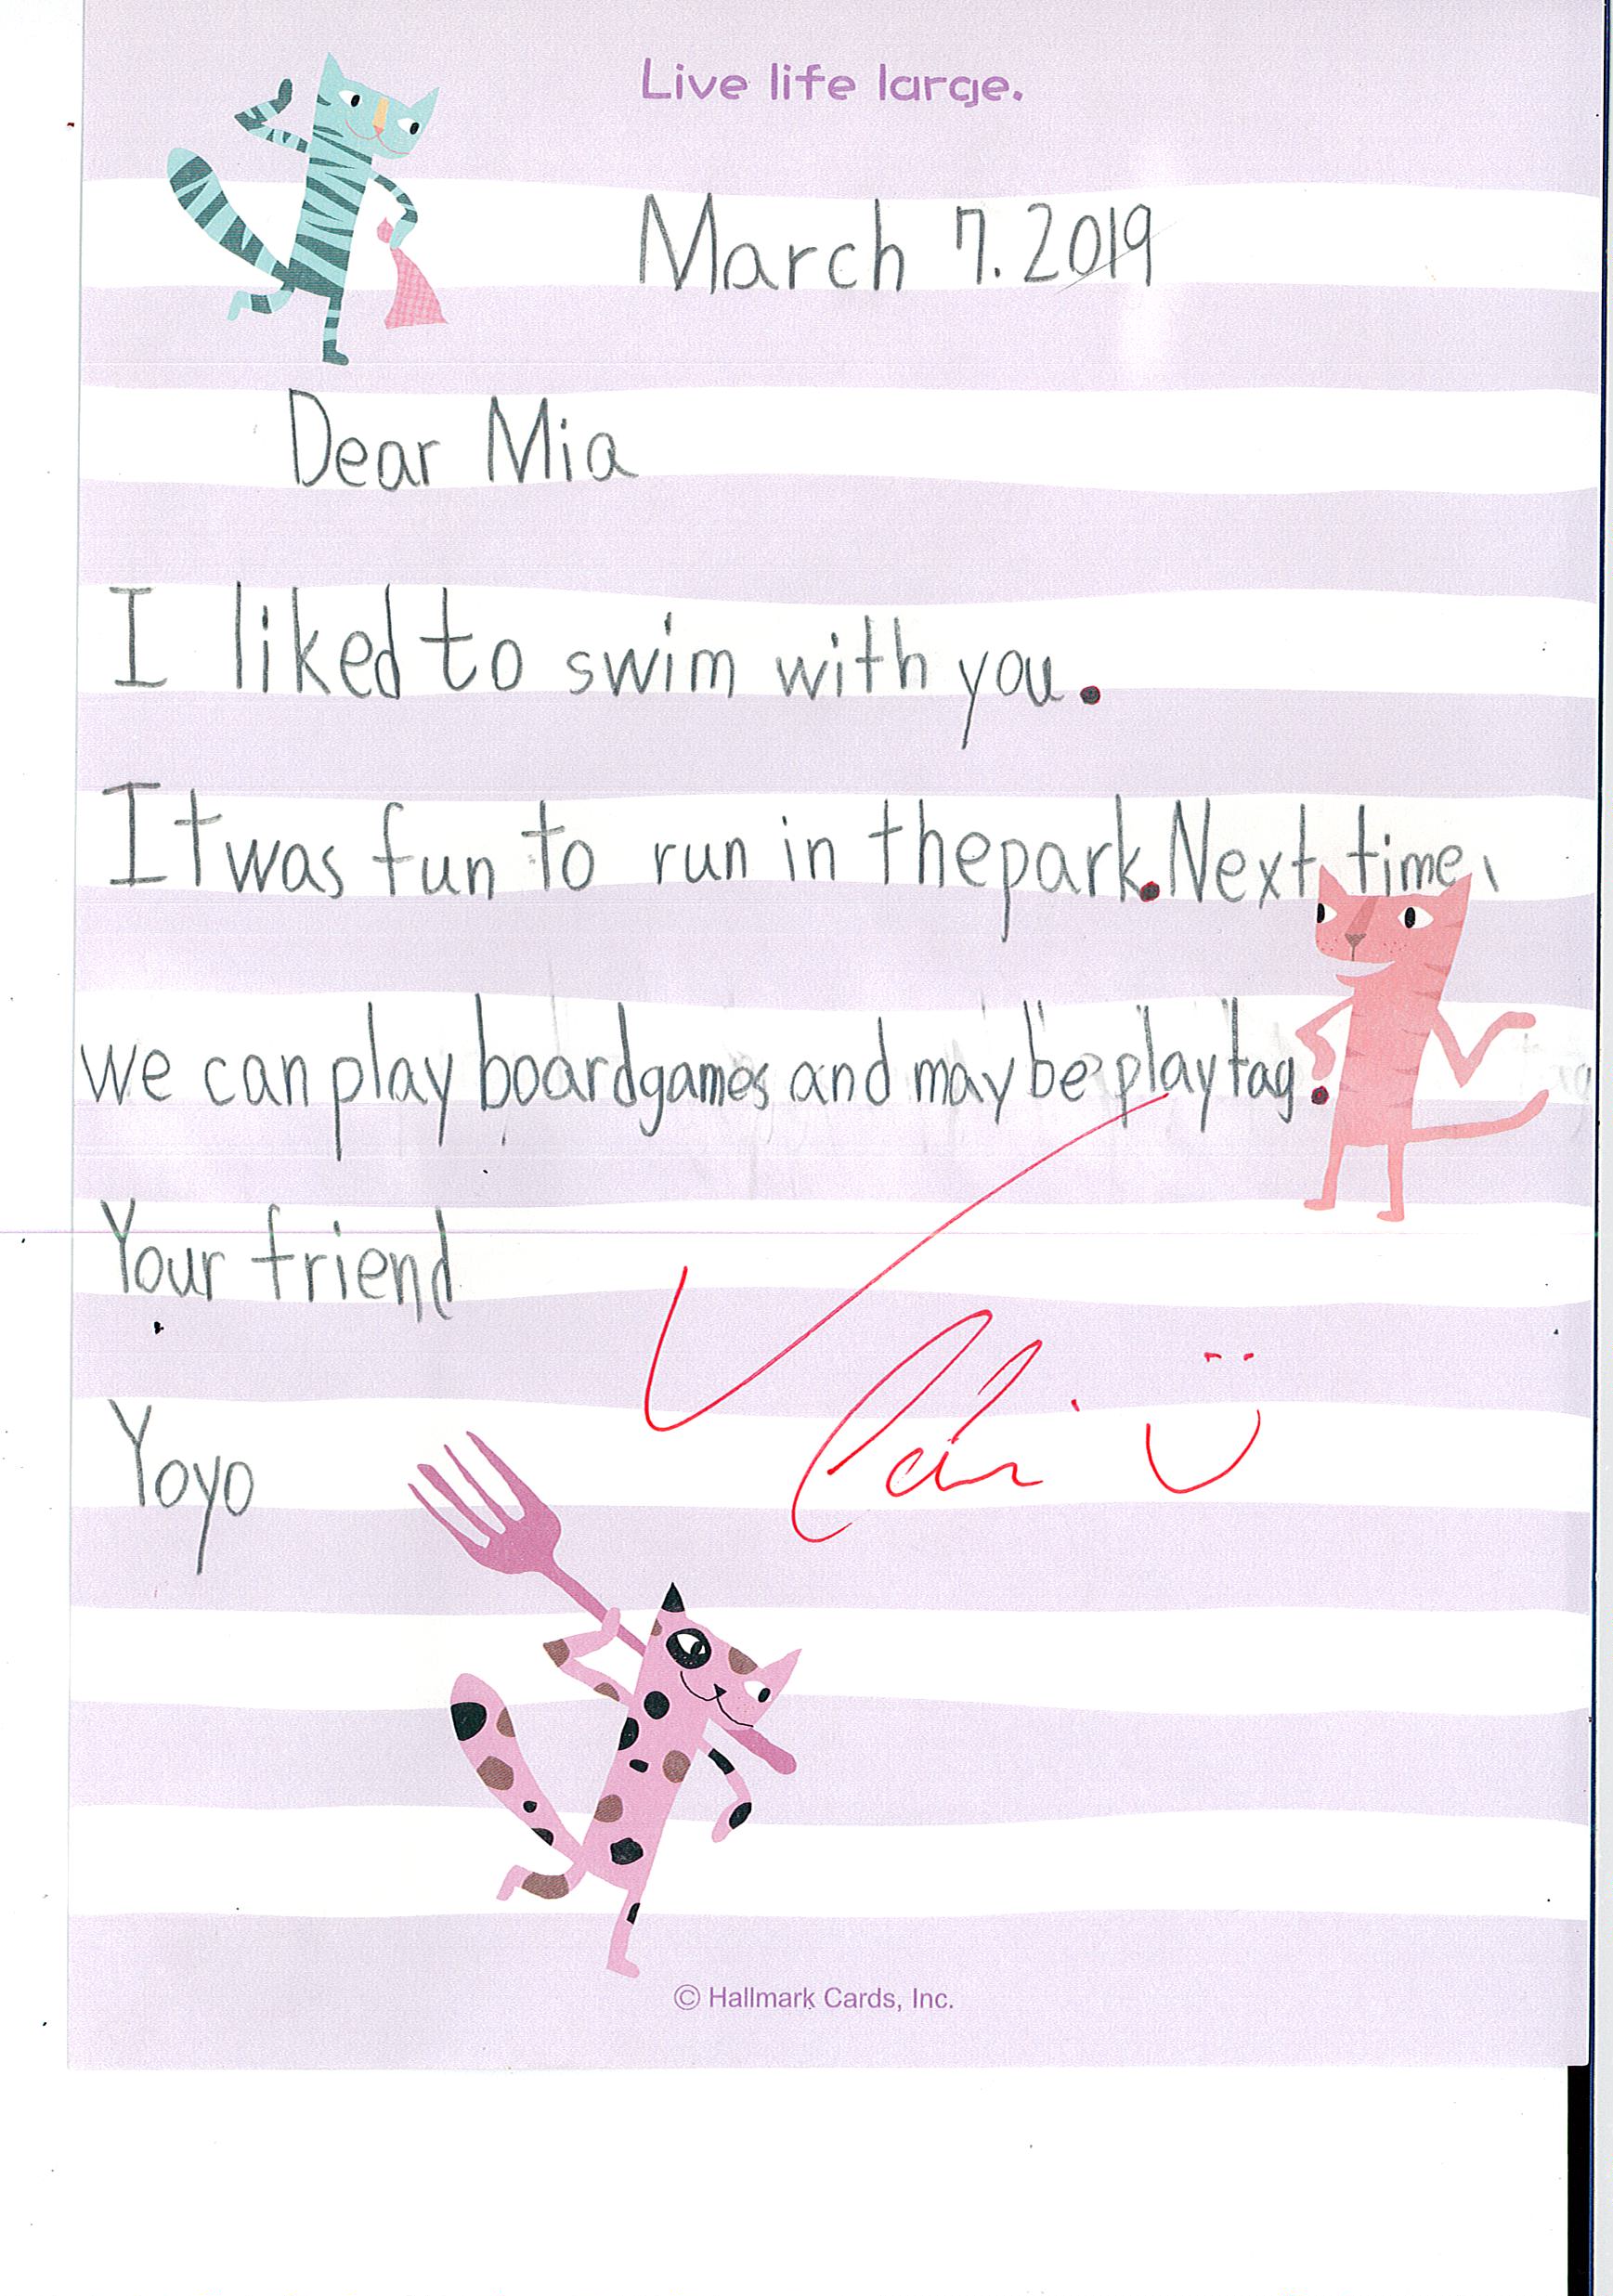 Live life large.
March 7. 2019
Dear Mia
I liked to swim with you.
It was fun to run in the park. Next time,
we can play boardgames and maybe play tag.
Your friend
Yoyo
© Hallmark Cards, Inc.